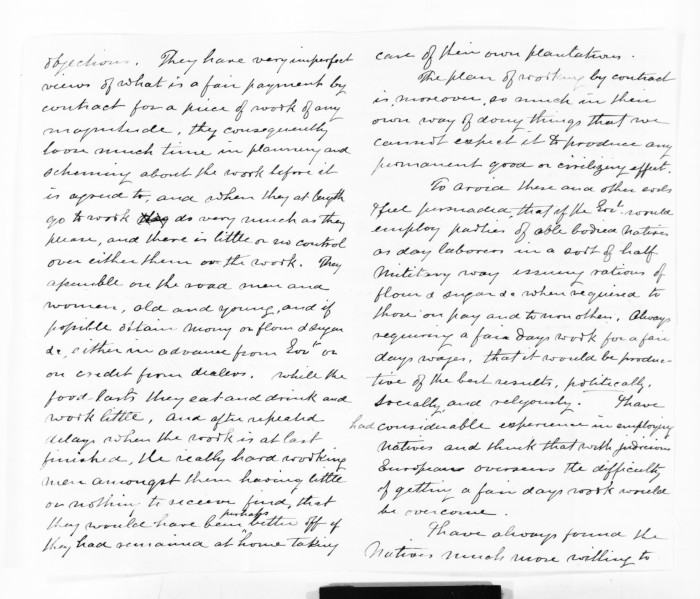 objections. They have very imperfect
views of what is a fair payment by
contract for a piece of work of any
magnitude, they consequently
loose much time in planning and
scheming about the work before it
is agreed to, and when they at length
go to work they do very much as they
please, and there is little or no control
over either them or the work. They
assemble on the road men and
women, old and young, and if
possible obtain mony or flour & sugar
&c, either in advance from Govt or
on credit from dealers. While the
food lasts they eat and drink and
work little, and after repeated
delays when the work is at last
finished, the really hard working
men amongst them having little
or nothing to receive find, that
they would have been perhaps better off if
they had remained at home taking
care of their own plantations.
The plan of working by contract
is, moreover, so much in their
own way of doing things that we
cannot expect it to produce any
permanent good or civilizing effect.
To avoid these and other evils
I feel persuaded, that if the Govt. would
employ parties of able bodied natives
as day laborers in a sort of half
military way issuing rations of
flour & sugar &c when required to
those on pay and to non others. Always
requiring a fair days work for a fair
days wages, that it would be produc-
tive of the best results, politically,
socially, and religously. I have
had considerable experience in employing
Natives and think that with judicious
European overseers the difficulty
of getting a fair days work would
be overcome.
I have always found the
Natives much more willing to